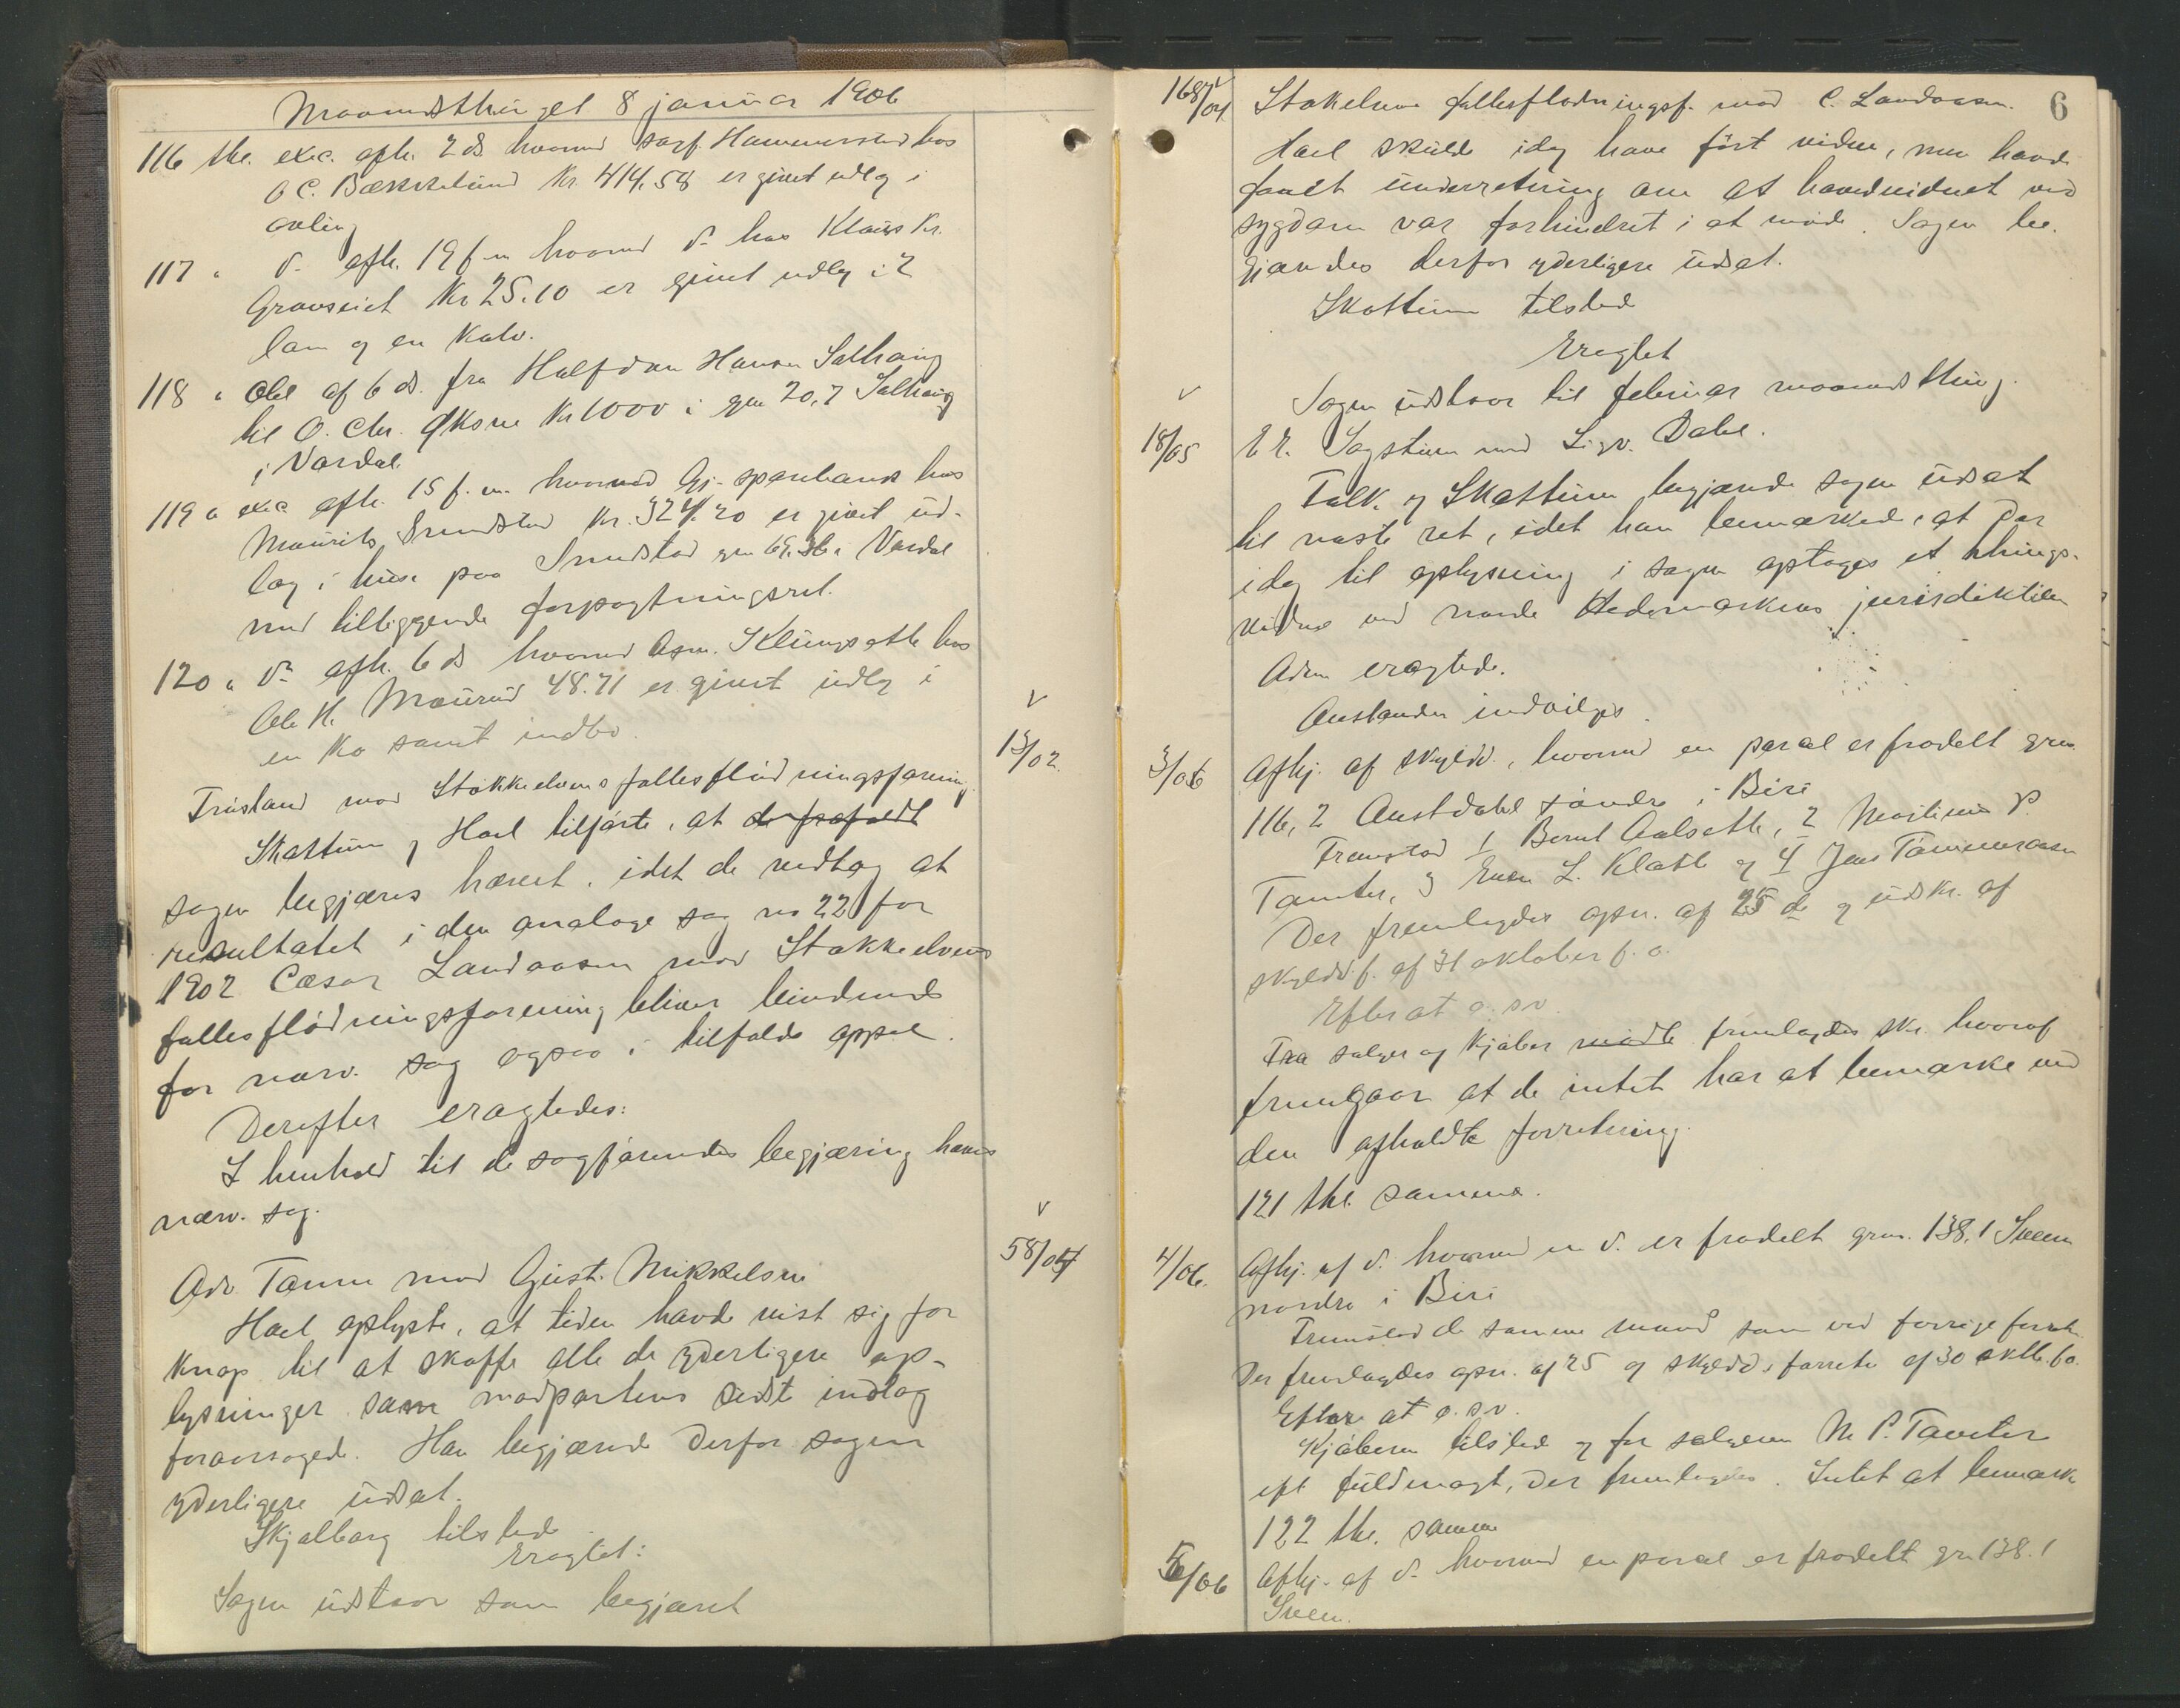 Maanedsthinget 8 januar 1906
116 thl. exec. afh. 2 ds hvorved sagf. Hammerstad hos
O C. Bækkelund Kr. 414,58 er givet udlæg i
avling
117 " d. afh. 19 f. m hvorved d. hos Klaus Kr.
Gravseiet Kr 25.10 er givet udlæg i 2
lam og en kalv.
118 " Obl af 6 ds. fra Halfdan Hansen Sælhaug
til O. Chr. Øksne Kr 1000 i gn 20,7 Sælhaug
i Vardal
119 " exec afh. 15 f. m. hvorved Gj. sparebank hos
Maurits Smedstad Kr. 324.20 er givet ud-
læg i huse paa Smedstad gn 69.36 i Vardal
med tilliggende forpagtningsret.
120 " d. afh. 6 ds hvorved Asm. Klungseth hos
Ole H. Maurud 48.71 er givet udlæg i
en ko samt indbo.
v
13/02.
Frusland mod Stokkelvens fællesflødningsforening
Skattum og Hoel tilførte, at de frafaldt
sagen begjæres hævet, idet de vedtog at
resultatet i den analoge sag no 22 for
1902 Cæsar Landaasen mod Stokkelvens
fællesflødningsforening bliver bindende
for nærv. sag ogsaa i tilfælde appel.
Derefter eragtedes:
I henhold til de sagførendes begjæring hæves
nærv. sag.
v
58/04
Adv. Tamm mod Gust. Mikkelsen
Hoel oplyste, at tiden havde vist sig for
knap til at skaffe alle de yderligere op-
lysninger som modpartens sidste indlæg
foraarsaged. Han begjærede derfor sagen
yderligere udsat.
Skjalborg tilstede.
Eragtet:
Sagen udstaar som begjæret
6
168/04
Stokelvens fællesflødningsf. mod C. Landaasen.
Hoel skulde idag have ført vidner, men havde
faaet underretning om at hovedvidnet ved
sygdom var forhindret i at møde. Sagen be-
gjærdes derfor yderligere udsat.
Skattum tilstede
Eragtet
v
Sagen udstaar til februar maanedsthing.
18/05
E E. Sagstuen mod Sigv. Dahl.
Falk og Skattum begjærede sagen udsat
til næste ret, idet han bemærkede, at der
idag til oplysning i sagen optages et things-
vidne ved nordre Hedemarkens jurisdiktion
Adm eragtede.
Anstanden indvilges.
3/06
Afhj. af skyldd., hvorved en parcel er fradelt grn.
116, 2 Austdahl søndre i Biri
Fremstod 1 Bernt Aalseth, 2 Martinius P.
Tømter, 3 Even L. Klæth og 4 Jens Tømmeraasen
Der fremlagdes opn. af 25 ds og udskr. af
skyldd.f. af 31 oktober f. a.
Efter at o.s.v
Fra sælger og kjøber mødte fremlagdes skr. hvoraf
fremgaar at de intet har at bemærke ved
den afholdte forretning.
121 thl. samme.
4/06.
Afhj. af d. hvorved en d. er fradelt grn. 138.1 Sveen
nordre i Biri
Fremstod de samme mænd som ved forrige forretn.
Der fremlagdes opn. af 25 og skyldd.s forretn af 30 oktb. f.a.
Efter at o.s.v.
Kjøberen tilstede og for sælgeren M P. Tømter
eft fuldmagt, der fremlagdes. Intet at bemærke
122 thl. samme
5/06
Afhj. af d. hvorved en parcel er fradelt gn 138.1
Sveen.